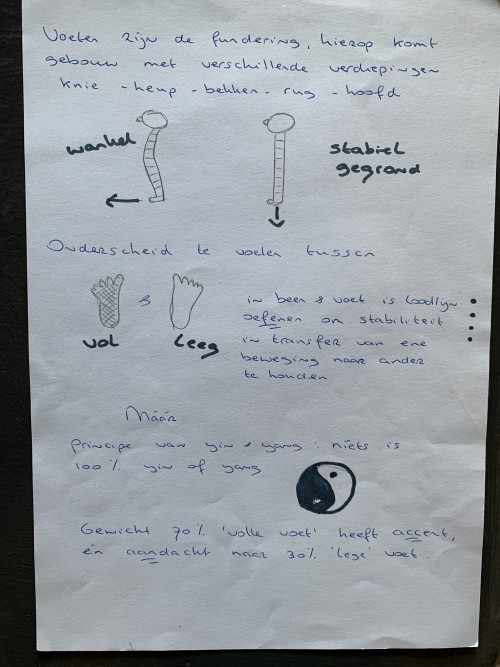 Voeten zijn de fundering, hierop komt
gebouw met verschillende verdiepingen
knie - heup - bekken - rug - hoofd
wankel
stabiel
gegrond
Onderscheid te voelen tussen
&
vol
leeg
in been & voet is loodlijn
oefenen om stabiliteit
in transfer van ene
beweging naar ander
te houden
Máár
principe van yin & yang : niets is
100 % yin of yang
Gewicht 70 % 'volle voet' heeft accent,
én aandacht naar 30% 'lege' voet.